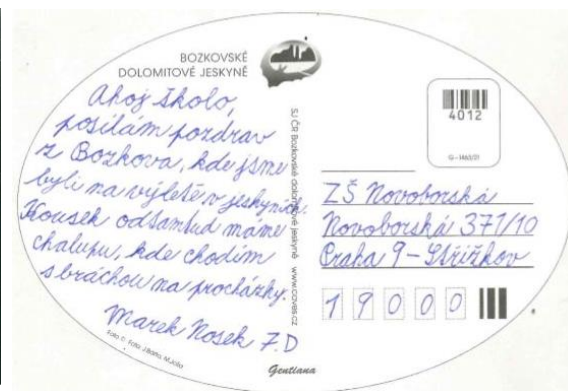 BOZKOVSKÉ
DOLOMITOVÉ JESKYNĚ
Ahoj školo,
posílám pozdrav
z Bozkova, kde jsme
byli na výletě v jeskyních.
Kousek odsamtud máme
chalupu, kde chodím
s bráchou na procházky.
Marek Nosek 7.D
SJ ČR Bozkovské dolomitové jeskyně www.caves.cz
4012
ZŠ Novoborská
Novoborská 371/10
Praha 9 - Střížkov
19000
Gentiana